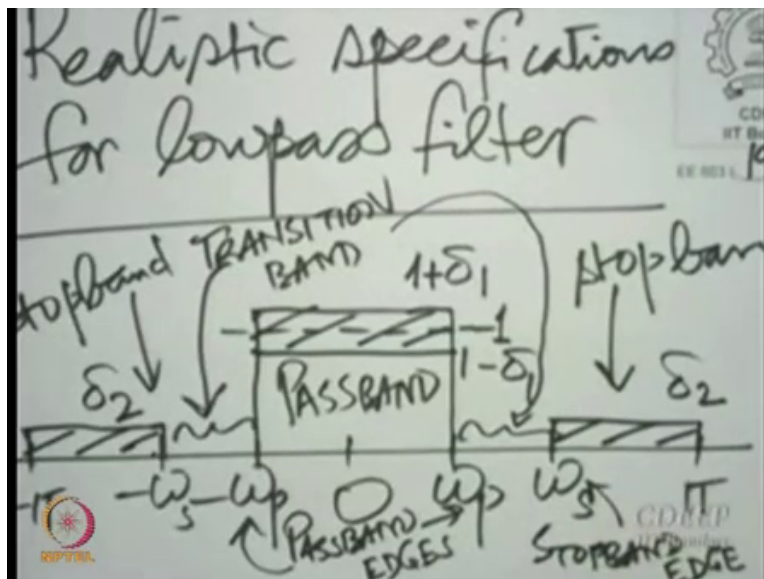 Realistic specifications
for lowpass filter
CDEEP
IIT Bo
EE 603 L
stopband TRANSITION
BAND
1+δ1
stopban
δ2
1
1-δ1
PASSBAND
δ2
-π
-ωs
-ωp
0
ωp
ωs
π
PASSBAND
EDGES
STOPBAND EDGE
NPTEL
CDEEP
IIT Bombay